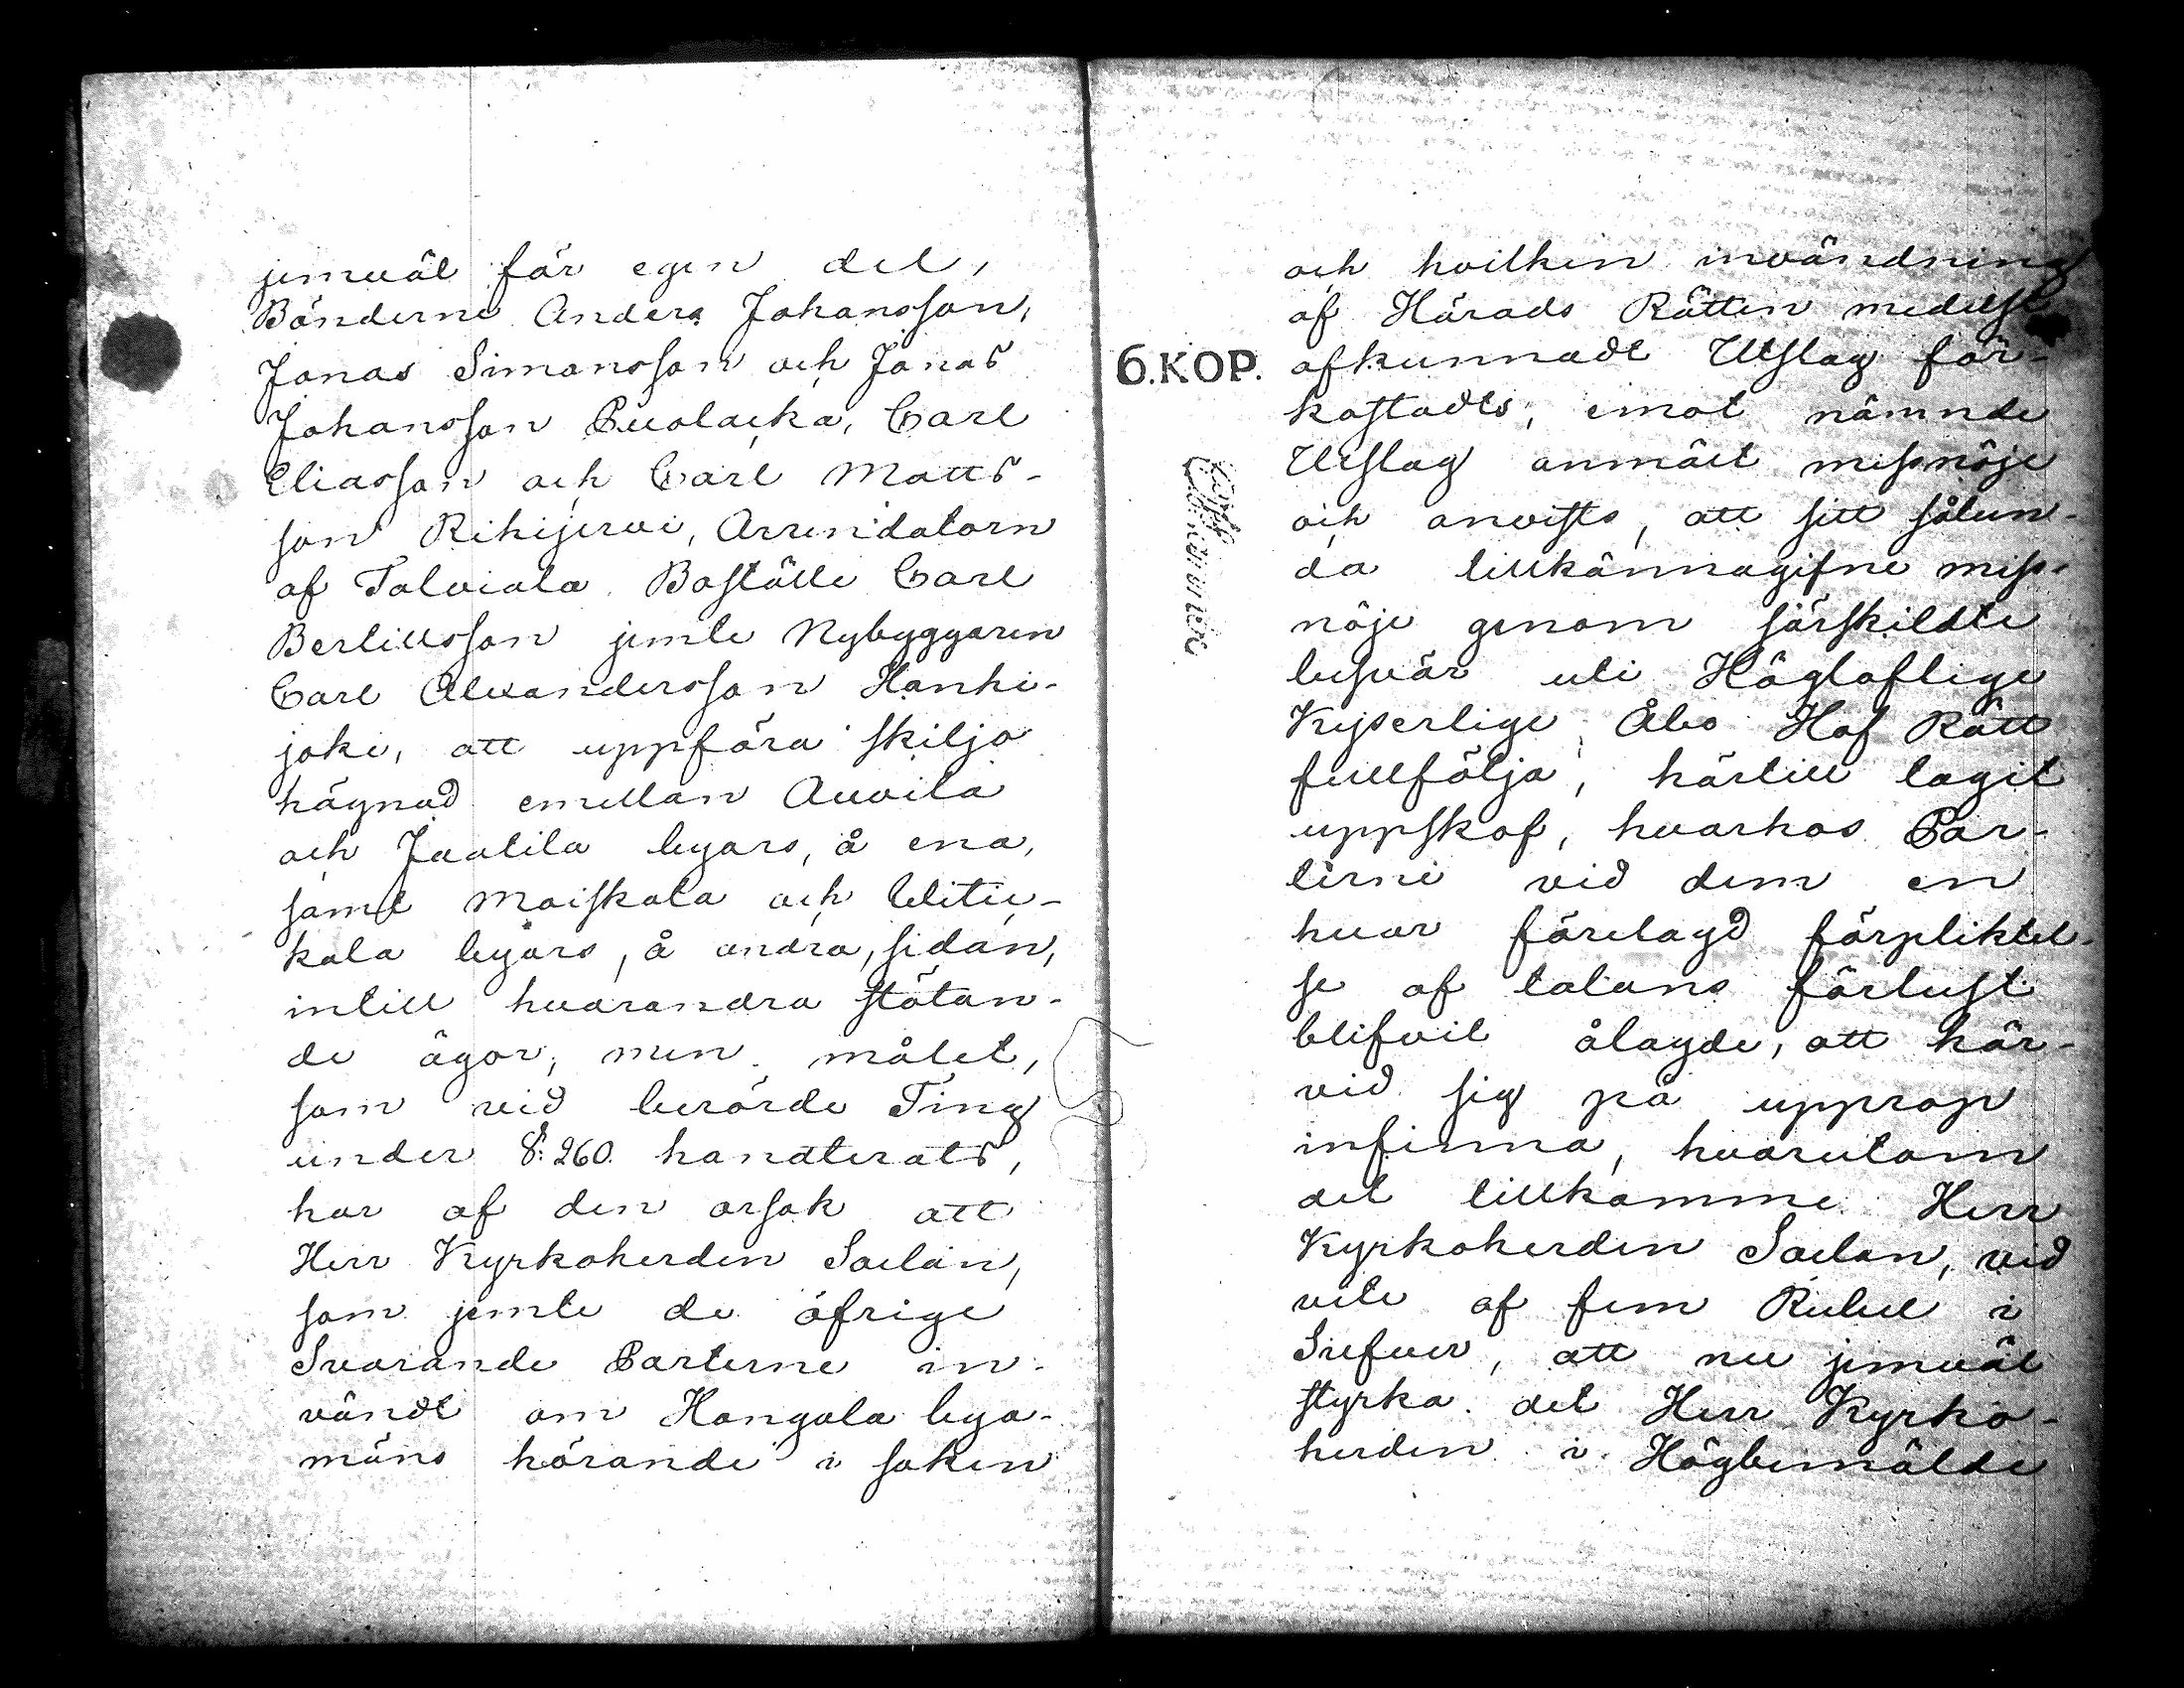 jemväl för egen del,
Bönderne Anders Johansson,
Jonas Simonsson och Jonas
Johansson Puolacka, Carl
Eliasson och Carl Matts-
son Rihijervi, Arrendatorn
af Talviala Boställe Carl
Bertillsson jemte Nybyggaren
Carl Alexandersson Hanhi-
joki, att uppföra skiljo
hägnad emellan Auvila
och Jaatila byars, å ena,
samt Maiskala och Witik-
kala byars, å andra, sidan,
intill hvarandra stötan-
de ägor; men målet,
som vid berörde Ting
under §: 260. handterats,
har af den orsak att
Herr Kyrkoherden Saelan,
som jemte de öfrige
Svarande Parterne in-
vändt om Hongola bya-
mäns hörande i saken
och hvilken invändning
af Härads Rätten medelst
afkunnadt Utslag för-
kastadts, emot nämnde
Utslag anmält missnöje
och anvists, att sitt sålun-
da tillkännagifne miss-
nöje genom särskildte
besvär uti Högloflige
Kejserlige Åbo Hof Rätt
fullfölja, härtill tagit
uppskof, hvarhos Par-
terne vid dem en
hvar förelagd förpliktel-
se af talans förlust
blifvit ålagde, att här-
vid sig på upprop
infinna, hvarutom
det tillkomme Herr
Kyrkoherden Saelan, vid
vite af fem Rubel i
Silfver, att nu jemväl
styrka det Herr Kyrko-
herden i Högbemälde
6.KOP.